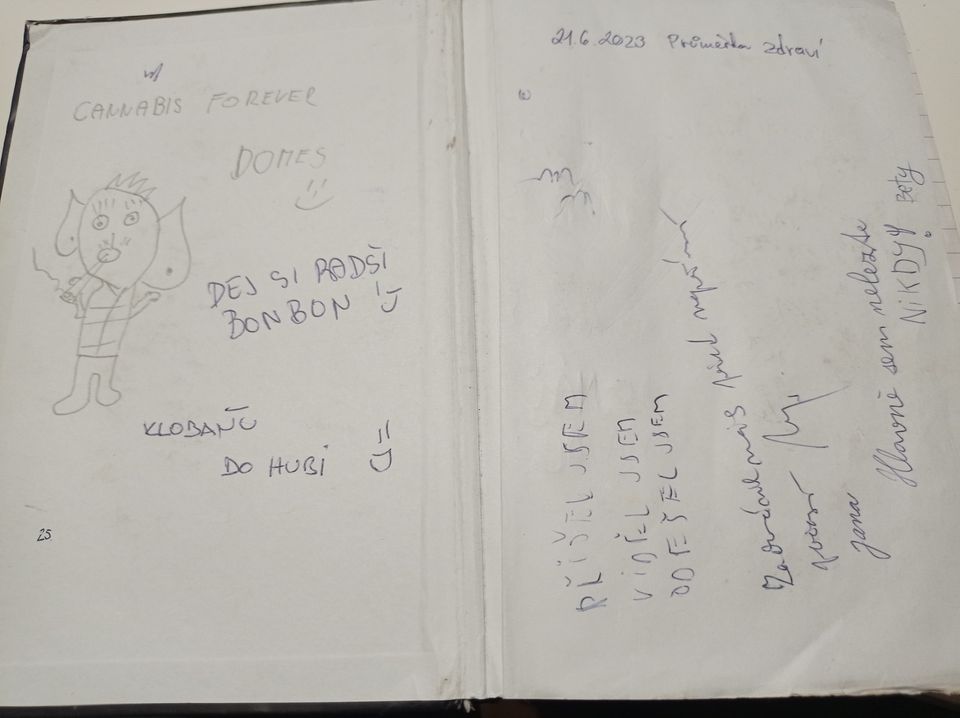 CANNABIS FOREVER
DOMES
DEJ SI RADŠI
BONBON
KLOBAŇU
DO HUBI
25
21.6.2023 Průměrka zdraví
PŘIŠEL JSEM
VIDĚL JSEM
ODEŠEL JSEM
Jana
Hlavně sem nelezte
NIKDY! Bety